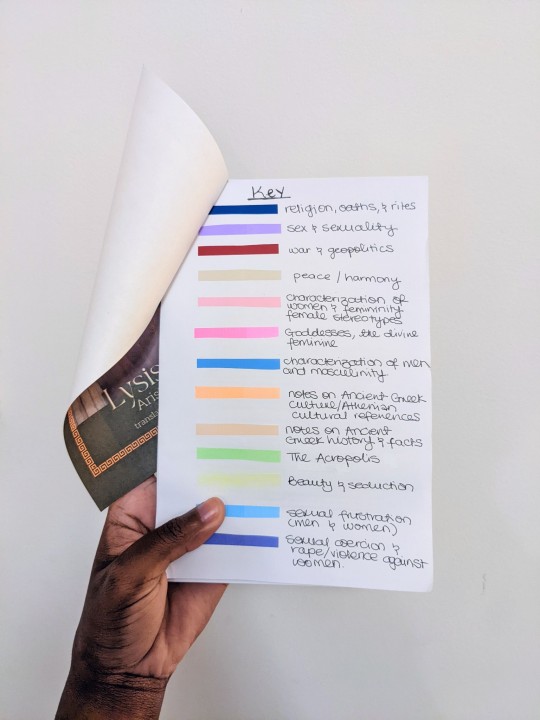 Key
religion, oaths, & rites
sex & sexuality
war & geopolitics
peace / harmony
characterization of
women & femininity
female stereotypes
Goddesses, the divine
feminine
characterization of men
and masculinity
notes on Ancient Greek
Culture/Athenian
cultural references
notes on Ancient
Greek history & facts
The Acropolis
Beauty & seduction
sexual frustration
(men & women)
sexual coercion &
rape/violence against
women.
Lysis
Aris
transla